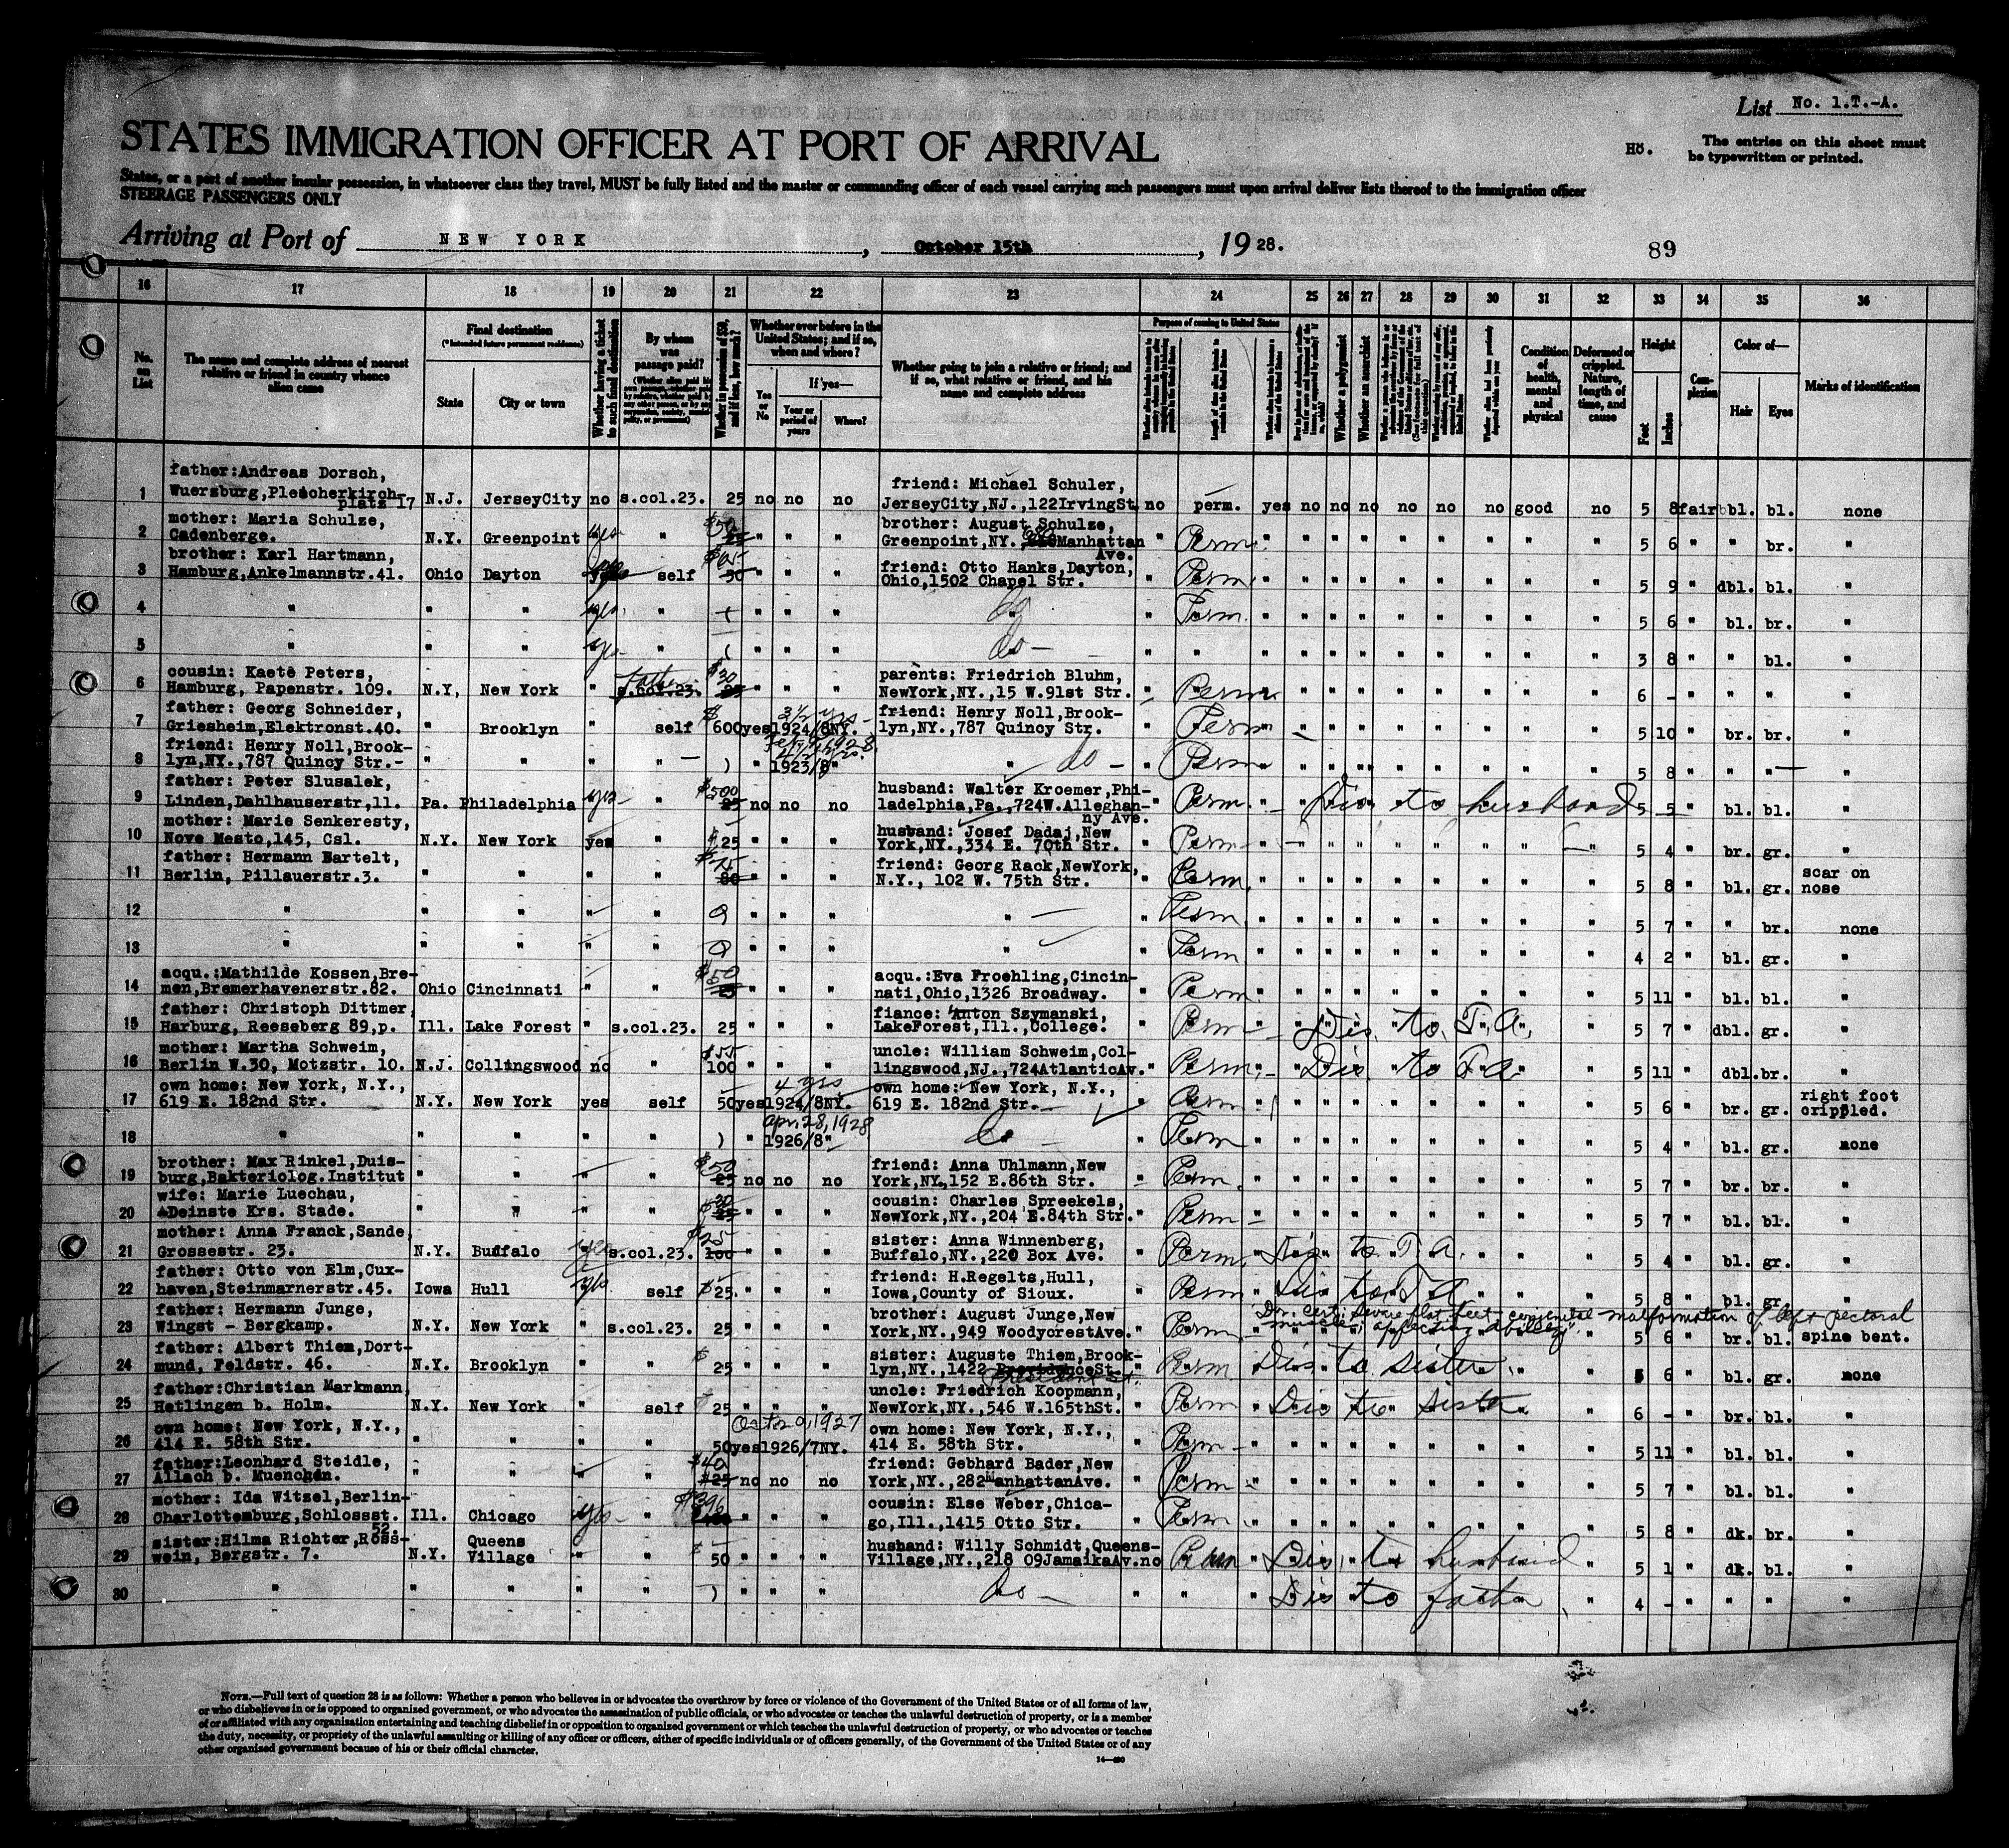 List No. 1.T.-A.
STATES IMMIGRATION OFFICER AT PORT OF ARRIVAL
Hö. The entries on this sheet must
be typewritten or printed.
States, or a part of another insular possession, in whatsoever class they travel, MUST be fully listed and the master or commanding officer of each vessel carrying such passengers must upon arrival deliver lists thereof to the immigration officer
STEERAGE PASSENGERS ONLY
Arriving at Port of NEW YORK, October 15th, 1928.
89
16 17 18 19 20 21 22 23 24 25 26 27 28 29 30 31 32 33 34 35 36
No. on List
The name and complete address of nearest relative or friend in country whence alien came
Final destination
(*Intended future permanent residence)
State
City or town
Whether having a ticket to such final destination
By whom was passage paid?
Whether in possession of $50, and if less, how much?
Whether ever before in the United States; and if so, when and where?
Yes or No
If yes—
Year or period of years
Where?
Whether going to join a relative or friend; and if so, what relative or friend, and his name and complete address
Purpose of coming to United States
Whether a polygamist
Whether an anarchist
Condition of health, mental and physical
Deformed or crippled. Nature, length of time, and cause
Height
Feet
Inches
Complexion
Color of—
Hair
Eyes
Marks of identification
1 father:Andreas Dorsch,
Wuersburg,Pleicherkirch-
platz 17 N.J. JerseyCity no s.col.23. 25 no no no friend: Michael Schuler,
JerseyCity,NJ.,122IrvingSt. no perm. yes no no no no no no good no 5 8 fair bl. bl. none
2 mother: Maria Schulze,
Cadenberge. N.Y. Greenpoint yes " $50 25 " " " brother: August Schulze,
Greenpoint,NY. Manhattan
Ave. " Perm. " " " " " " " " " 5 6 " " br. "
3 brother: Karl Hartmann,
Hamburg,Ankelmannstr.41. Ohio Dayton yes self $65- 50 " " " friend: Otto Hanks,Dayton,
Ohio,1502 Chapel Str. " Perm " " " " " " " " " 5 9 " dbl. bl. "
4 " " " yes " " " " do " Perm. " " " " " " " " " 5 6 " bl. br. "
5 " " " yes " " " " do - " " " " " " " " " " " 3 8 " " bl. "
6 cousin: Kaete Peters,
Hamburg, Papenstr. 109. N.Y, New York " Father s.col.23. $30 25 " " " parents: Friedrich Bluhm,
NewYork,NY.,15 W.91st Str. " Perm " " " " " " " " " 6 - " " " "
7 father: Georg Schneider,
Griesheim,Elektronst.40. " Brooklyn " self $ 600 yes 3½ yrs- 1924/8 NY. friend: Henry Noll,Brook-
lyn,NY.,787 Quincy Str. " Perm " " " " " " " " " 5 10 " br. br. "
8 friend: Henry Noll,Brook-
lyn,NY.,787 Quincy Str.- " " " " " 1923/8 " " do - " Perm " " " " " " " " " 5 8 " " " "
9 father: Peter Slusalek,
Linden,Dahlhauserstr,11. Pa. Philadelphia yes " $500 25 no no no husband: Walter Kroemer,Phi-
ladelphia,Pa.,724W.Alleghan-
ny Ave. " Perm. Dis to husband 5 5 " bl. bl. "
10 mother: Marie Senkeresty,
Nove Mesto,145, Csl. N.Y. New York yes " $ 25 " " " husband: Josef Dadaj,New
York,NY.,334 E. 70th Str. " Perm " " " " " " " " " 5 4 " br. gr. "
11 father: Hermann Bartelt,
Berlin, Pillauerstr.3. " " " " $75 80 " " " friend: Georg Rack,NewYork,
N.Y., 102 W. 75th Str. " Perm. " " " " " " " " " 5 8 " bl. gr. scar on
nose
12 " " " " " " " " " " Perm. " " " " " " " " " 5 7 " " br. none
13 " " " " " " " " " " Perm " " " " " " " " " 4 2 " bl. gr. "
14 acqu.:Mathilde Kossen,Bre-
men,Bremerhavenerstr.82. Ohio Cincinnati " " $50 25 " " " acqu.:Eva Froehling,Cincin-
nati,Ohio,1326 Broadway. " Perm. " " " " " " " " " 5 11 " bl. bl. "
15 father: Christoph Dittmer,
Harburg, Reeseberg 89,p. Ill. Lake Forest " s.col.23. 25 " " " fiance: Anton Szymanski,
LakeForest,Ill.,College. " Perm Dis. to T.A. 5 7 " dbl. gr. "
16 mother: Martha Schweim,
Berlin W.30, Motzstr. 10. N.J. Collingswood no " $55 100 " " " uncle: William Schweim,Col-
lingswood,NJ.,724AtlanticAv. " Perm. Dis. to T.A. 5 11 " dbl. br. "
17 own home: New York, N.Y.,
619 E. 182nd Str. N.Y. New York yes self 50 yes 4 yrs 1924/8 NY. own home: New York, N.Y.,
619 E. 182nd Str. " Perm. " " " " " " " " " 5 6 " br. gr. right foot
crippled.
18 " " " " " " Apr. 28, 1928
1926/8 " do - " Perm " " " " " " " " " 5 4 " bl. gr. none
19 brother: Max Rinkel,Duis-
burg,Bakteriolog.Institut " " " " $50 25 no no no friend: Anna Uhlmann,New
York,NY.,152 E.86th Str. Perm. " " " " " " " " " 5 7 " br. br. "
20 wife: Marie Luechau,
Deinste Krs. Stade. " " " " $30 25 " " " cousin: Charles Spreekels,
NewYork,NY.,204 E.84th Str. " Perm - " " " " " " " " " 5 7 " bl. bl. "
21 mother: Anna Franck,Sande,
Grossestr. 23. N.Y. Buffalo yes s.col.23. $25 100 " " " sister: Anna Winnenberg,
Buffalo,NY.,220 Box Ave. " Perm. Dis to T.A. 5 4 " bl. gr. "
22 father: Otto von Elm,Cux-
haven,Steinmarnerstr.45. Iowa Hull yes self $ 25. " " " friend: H.Regelts,Hull,
Iowa,County of Sioux. " Perm Dis to T.A 5 8 " bl. gr. "
23 father: Hermann Junge,
Wingst - Bergkamp. N.Y. New York " s.col.23. 25 " " " brother: August Junge,New
York,NY.,949 WoodycrestAve. " Perm Dr. cert: Severe flat feet - congenital malformation of left pectoral
muscle; affecting ability. 5 6 " br. bl. spine bent.
24 father: Albert Thiem,Dort-
mund, Feldstr. 46. N.Y. Brooklyn " " $ 25 " " " sister: Auguste Thiem,Brook-
lyn,NY.,1422 ProvidenceSt.
President St. " Perm Dis to sister 5 6 " bl. gr. none
25 father:Christian Markmann,
Hetlingen b. Holm. N.Y. New York " self 25 " " " uncle: Friedrich Koopmann,
NewYork,NY.,546 W.165thSt. " Perm Dis to sister 6 - " br. bl. "
26 own home: New York, N.Y.,
414 E. 58th Str. " " " " 50 yes 1927
1926/7 NY. own home: New York, N.Y.,
414 E. 58th Str. " Perm " " " " " " " " " 5 11 " bl. bl. "
27 father:Leonhard Steidle,
Allach b. Muenchen. " " " $40 $25 no no no friend: Gebhard Bader,New
York,NY.,282ManhattanAve. " Perm " " " " " " " " " 5 7 " bl. bl. "
28 mother: Ida Witzel,Berlin-
Charlottenburg,Schlossst.
52. Ill. Chicago yes - " $396 " " " cousin: Else Weber,Chica-
go,Ill.,1415 Otto Str. " Perm. " " " " " " " " " 5 8 " dk. br. "
29 sister:Hilma Richter,Ross-
wein, Bergstr. 7. N.Y. Queens
Village " " $ 50 " " " husband: Willy Schmidt,Queens-
Village,NY.,218 09JamaikaAv. no Perm " Dis. to husband 5 1 " dk. bl. "
30 " " " " " " " " do - " " " Dis to father 4 - " " " "
NOTE.—Full text of question 28 is as follows: Whether a person who believes in or advocates the overthrow by force or violence of the Government of the United States or of all forms of law,
or who disbelieves in or is opposed to organized government, or who advocates the assassination of public officials, or who advocates or teaches the unlawful destruction of property, or is a member
of or affiliated with any organization entertaining and teaching disbelief in or opposition to organized government or which teaches the unlawful destruction of property, or who advocates or teaches
the duty, necessity, or propriety of the unlawful assaulting or killing of any officer or officers, either of specific individuals or of officers generally, of the Government of the United States or of any
other organized government because of his or their official character.
14—480